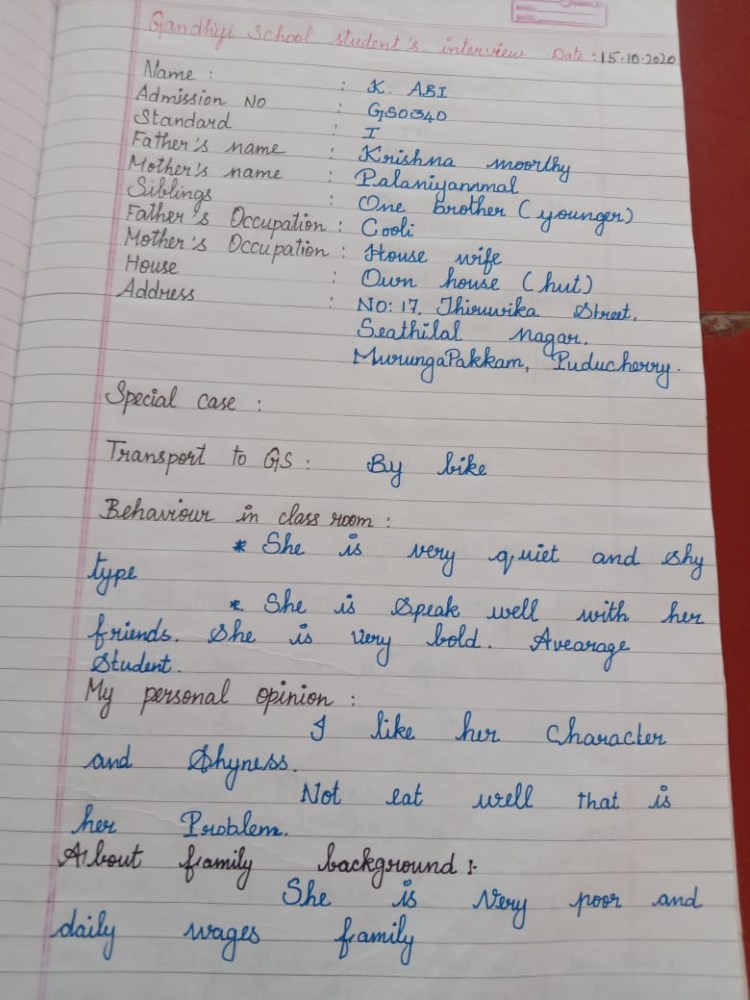 Gandhiji School student's interview Date : 15.10.2020
Name : : K. ABI
Admission No : GS0340
Standard : I
Father's name : Krishna moorthy
Mother's name : Palaniyammal
Siblings : One brother (younger)
Father's Occupation : Cooli
Mother's Occupation : House wife
House : Own house (hut)
Address : NO: 17, Thiruvika Street,
Seathilal nagar,
MurungaPakkam, Puducherry.
Special case :
Transport to GS : By bike
Behaviour in class room :
* She is very quiet and shy
type
* She is Speak well with her
friends. She is very bold. Avearage
Student.
My personal opinion :
I like her Character
and Shyness.
Not eat well that is
her Problem.
About family background :-
She is Very poor and
daily wages family